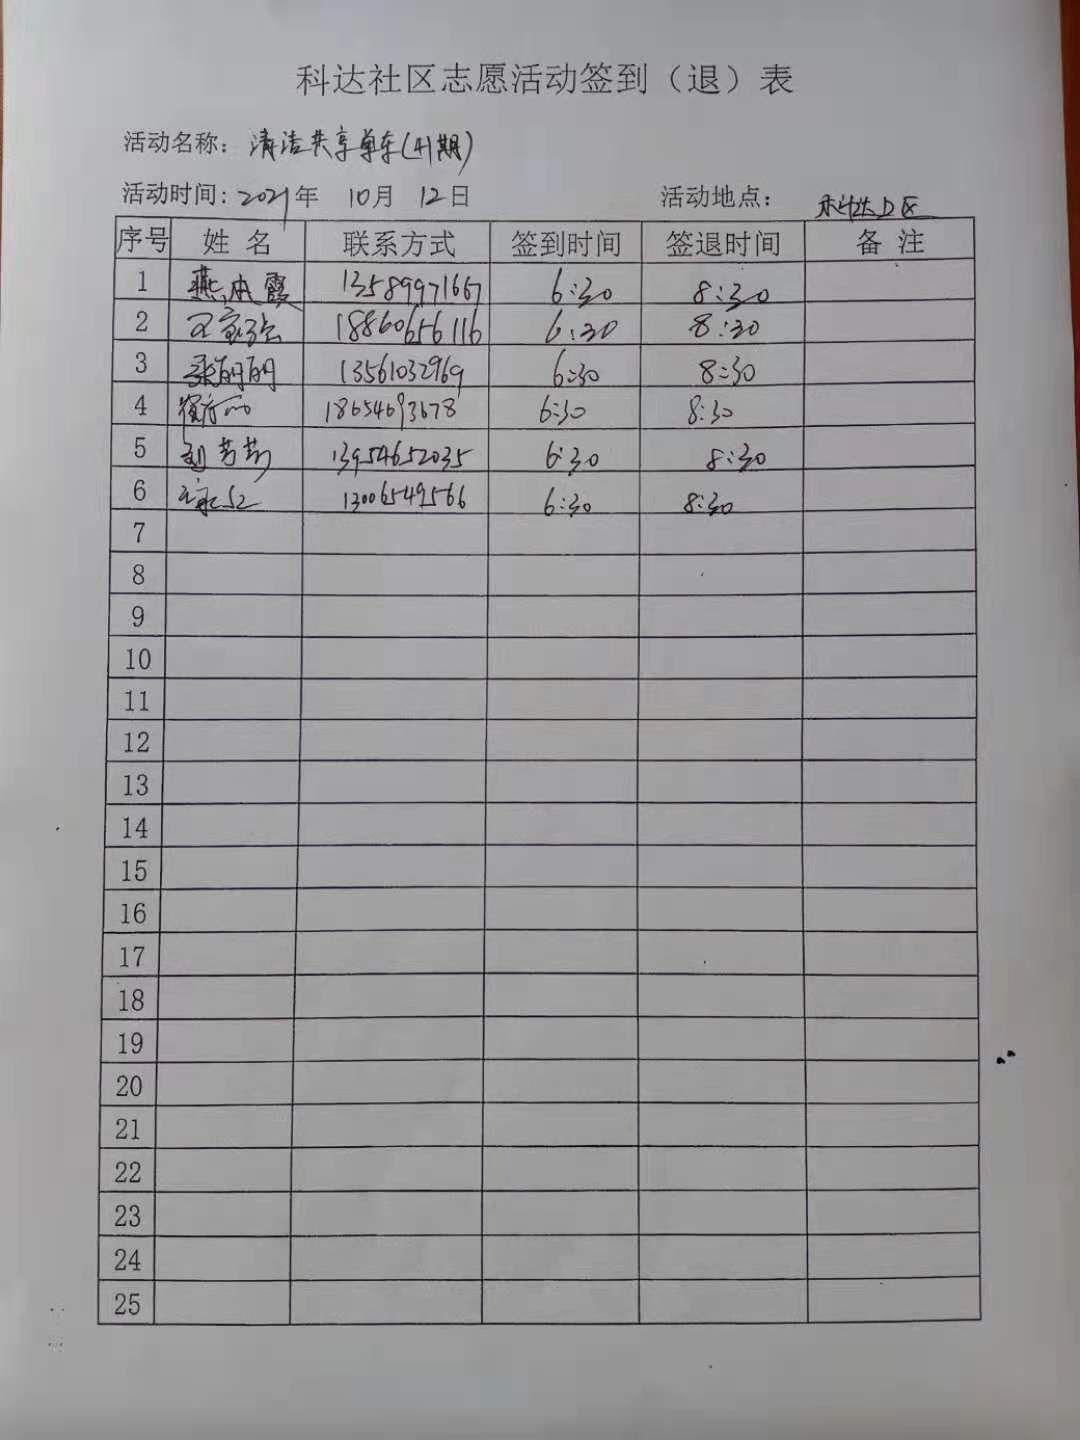 科达社区志愿活动签到（退）表
活动名称：清洁共享单车(41期)
活动时间：2021年 10月 12日 活动地点：科达D区
序号 姓名 联系方式 签到时间 签退时间 备注
1 燕本霞 13589971667 6:30 8:30
2 18860656116 6:30 8:30
3 张丽丽 13561032969 6:30 8:30
4 18654693678 6:30 8:30
5 刘芳芳 13954652035 6:30 8:30
6 13006549566 6:30 8:30
7
8
9
10
11
12
13
14
15
16
17
18
19
20
21
22
23
24
25